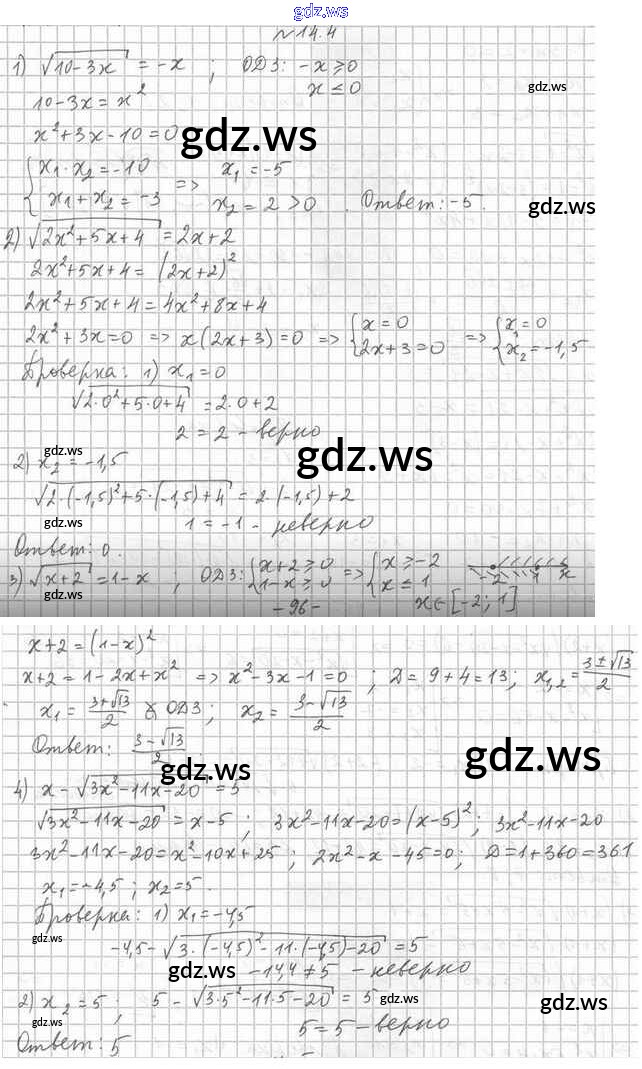 gdz.ws
№14.4
1) √(10-3x) = -x ; ОДЗ: -x ≥ 0
x ≤ 0
gdz.ws
10-3x = x²
x²+3x-10=0
gdz.ws
{x₁·x₂=-10
x₁+x₂=-3 => x₁=-5
x₂=2>0. Ответ: -5.
gdz.ws
2) √(2x²+5x+4) = 2x+2
2x²+5x+4 = (2x+2)²
2x²+5x+4 = 4x²+8x+4
2x²+3x=0 => x(2x+3)=0 => {x=0 2x+3=0 => {x₁=0 x₂=-1,5
Проверка: 1) x₁=0
√(2·0²+5·0+4) = 2·0+2
2=2 - верно
gdz.ws
gdz.ws
2) x₂=-1,5
√(2·(-1,5)²+5·(-1,5)+4) = 2·(-1,5)+2
gdz.ws
1=-1 - неверно
Ответ: 0.
3) √(x+2) = 1-x ; ОДЗ: {x+2≥0 1-x≥0 => {x≥-2 x≤1 -2 1 x
gdz.ws
-96-
x∈[-2; 1]
x+2=(1-x)²
x+2=1-2x+x² => x²-3x-1=0 ; D=9+4=13; x₁,₂=(3±√13)/2
x₁=(3+√13)/2 ∉ ОДЗ; x₂=(3-√13)/2
Ответ: (3-√13)/2.
gdz.ws
gdz.ws
4) x-√(3x²-11x-20)=5
√(3x²-11x-20)=x-5 ; 3x²-11x-20=(x-5)²; 3x²-11x-20
3x²-11x-20=x²-10x+25 ; 2x²-x-45=0; D=1+360=361
x₁=-4,5; x₂=5.
Проверка: 1) x₁=-4,5
gdz.ws
-4,5-√(3·(-4,5)²-11·(-4,5)-20)=5
gdz.ws
-14,4≠5 - неверно
2) x₂=5; 5-√(3·5²-11·5-20)=5
gdz.ws
gdz.ws
gdz.ws
5=5 - верно
Ответ: 5